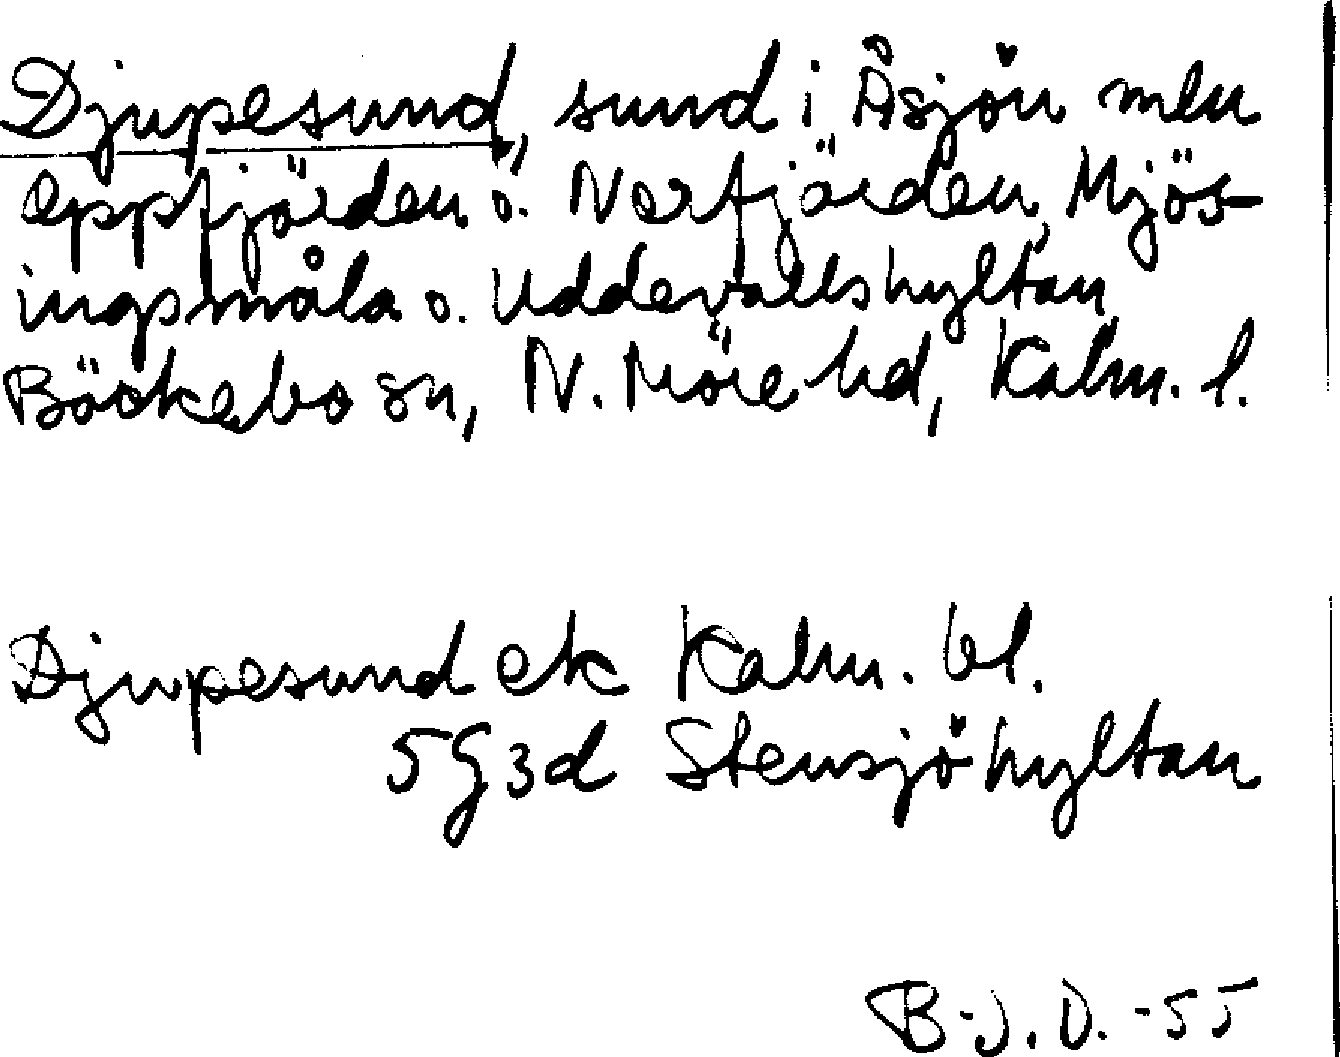 Djupesund, sund i Åsjön mlu
Oppfjärden o. Nerfjärden, Mjös-
ingsmåla o. Uddevallshyltan
Bäckebo sn, N. Möre hd, Kalm. l.
Djupesund ek Kalm. bl.
5G3d Stensjöhyltan
B-J.D.-55